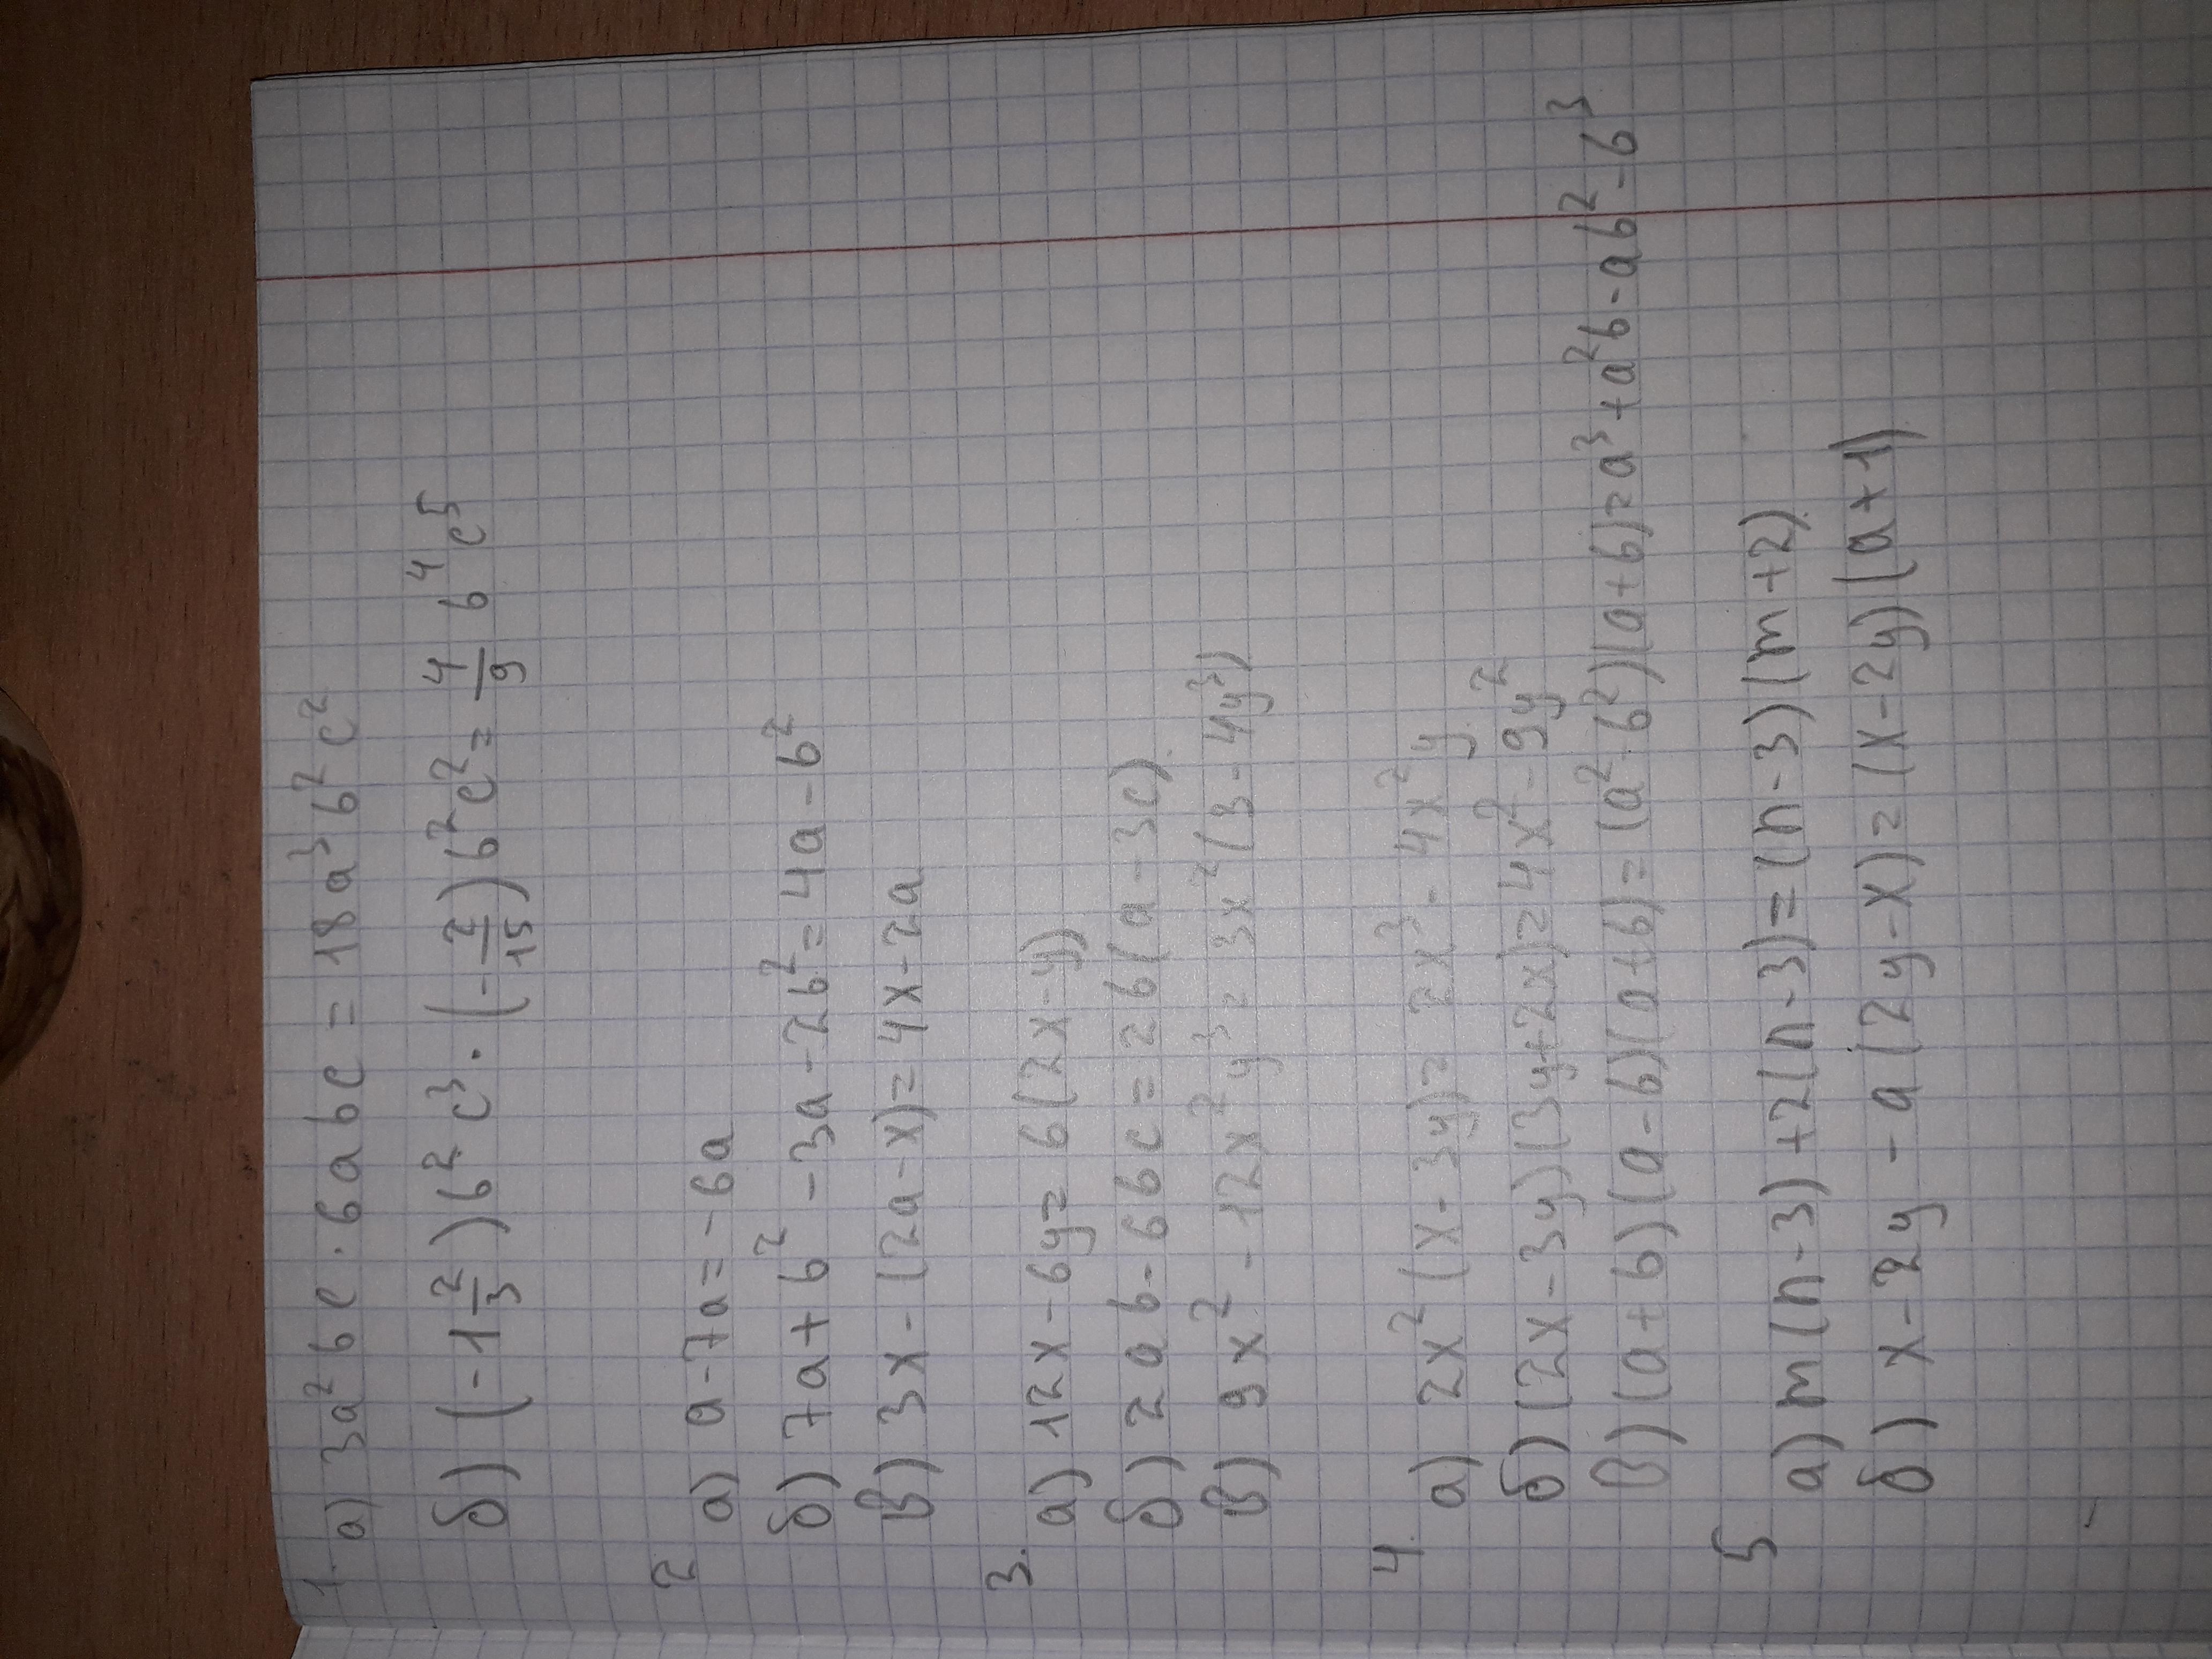 1.
а) 3a²bc · 6abc = 18a³b²c²
б) (-1 2/3)b²c³ · (-2/15)b²c² = 4/9 b⁴c⁵
2
а) a-7a = -6a
б) 7a+b² -3a-2b² = 4a-b²
в) 3x-(2a-x) = 4x-2a
3.
а) 12x-6y = 6(2x-y)
б) 2ab-6bc = 2b(a-3c)
в) 9x² - 12x²y³ = 3x²(3-4y³)
4.
а) 2x²(x-3y) = 2x³ - 4x²y
б) (2x-3y)(3y+2x) = 4x²-9y²
в) (a+b)(a-b)(a+b) = (a²-b²)(a+b) = a³+a²b-ab²-b³
5
а) m(n-3)+2(n-3) = (n-3)(m+2)
б) x-2y-a(2y-x) = (x-2y)(a+1)